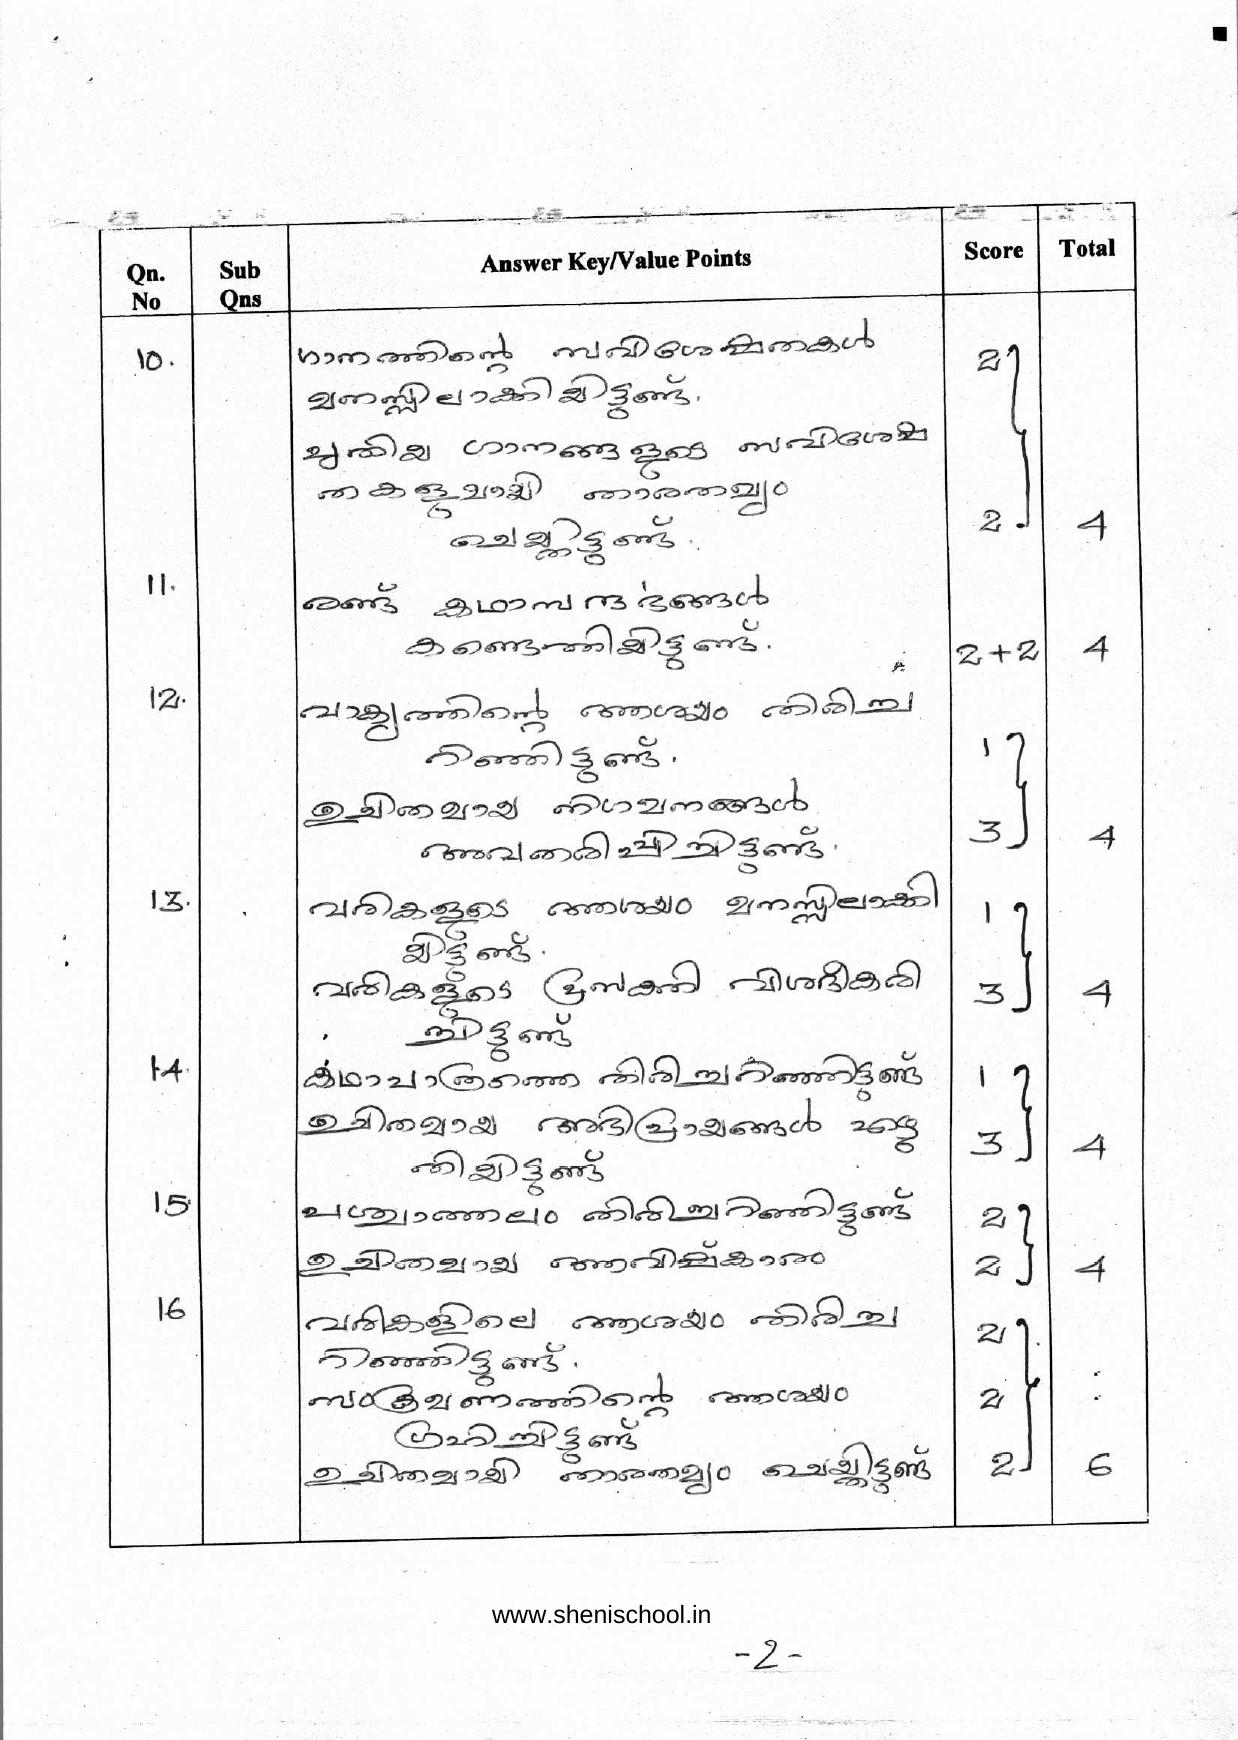 Qn. No
Sub Qns
Answer Key/Value Points
Score
Total
10. ഗാനത്തിന്റെ സവിശേഷതകൾ 2
മനസ്സിലാക്കിയിട്ടുണ്ട്.
പുതിയ ഗാനങ്ങളുടെ സവിശേഷ
തകളുമായി താരതമ്യം 2 4
ചെയ്തിട്ടുണ്ട്.
11. രണ്ട് കഥാസന്ദർഭങ്ങൾ
കണ്ടെത്തിയിട്ടുണ്ട്. 2+2 4
12. വാക്യത്തിന്റെ ആശയം തിരിച്ച
റിഞ്ഞിട്ടുണ്ട്. 1
ഉചിതമായ നിഗമനങ്ങൾ
അവതരിപ്പിച്ചിട്ടുണ്ട്. 3 4
13. വരികളുടെ ആശയം മനസ്സിലാക്കി 1
യിട്ടുണ്ട്.
വരികളുടെ പ്രസക്തി വിശദീകരി 3 4
ച്ചിട്ടുണ്ട്
14. കഥാപാത്രത്തെ തിരിച്ചറിഞ്ഞിട്ടുണ്ട് 1
ഉചിതമായ അഭിപ്രായങ്ങൾ എഴു 3 4
തിയിട്ടുണ്ട്
15. പശ്ചാത്തലം തിരിച്ചറിഞ്ഞിട്ടുണ്ട് 2
ഉചിതമായ ആവിഷ്കാരം 2 4
16 വരികളിലെ ആശയം തിരിച്ച 2
റിഞ്ഞിട്ടുണ്ട്.
സംക്രമണത്തിന്റെ ആശയം 2
ഗ്രഹിച്ചിട്ടുണ്ട്
ഉചിതമായി താരതമ്യം ചെയ്തിട്ടുണ്ട് 2 6
www.shenischool.in
-2-